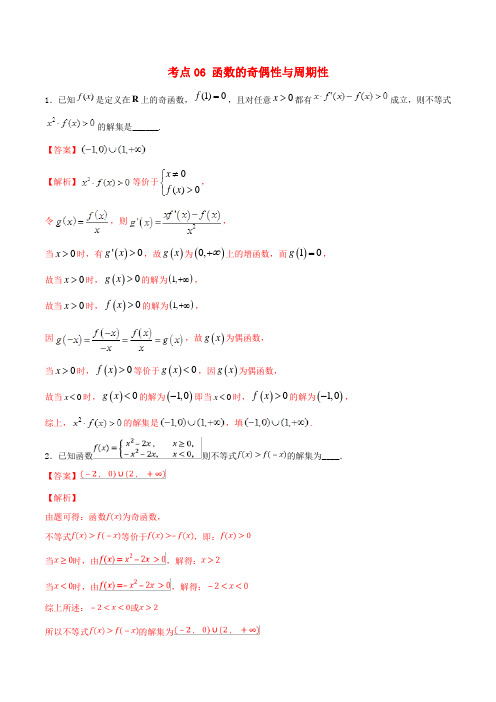 考点06 函数的奇偶性与周期性
1．已知 f(x) 是定义在 R 上的奇函数，f(1)=0，且对任意 x>0 都有 x·f'(x)−f(x)>0 成立，则不等式
x²·f(x)>0 的解集是______.
【答案】(−1,0)∪(1,+∞)
【解析】x²·f(x)>0 等价于 { x≠0 f(x)>0 ，
令 g(x)=f(x)/x，则 g'(x)=(xf'(x)−f(x))/x²，
当 x>0 时，有 g'(x)>0，故 g(x) 为 (0,+∞) 上的增函数，而 g(1)=0，
故当 x>0 时，g(x)>0 的解为 (1,+∞)，
故当 x>0 时，f(x)>0 的解为 (1,+∞)，
因 g(−x)=f(−x)/−x=f(x)/x=g(x)，故 g(x) 为偶函数，
当 x>0 时，f(x)>0 等价于 g(x)<0，因 g(x) 为偶函数，
故当 x<0 时，g(x)<0 的解为 (−1,0) 即当 x<0 时，f(x)>0 的解为 (−1,0)，
综上，x²·f(x)>0 的解集是 (−1,0)∪(1,+∞)，填 (−1,0)∪(1,+∞).
2．已知函数 f(x)={ x²−2x, x≥0, −x²−2x, x<0, 则不等式 f(x)>f(−x) 的解集为____．
【答案】(−2，0)∪(2，+∞)
【解析】
由题可得：函数 f(x) 为奇函数，
不等式 f(x)>f(−x) 等价于 f(x)>−f(x)，即：f(x)>0
当 x≥0 时，由 f(x)=x²−2x>0，解得：x>2
当 x<0 时，由 f(x)=−x²−2x>0，解得：−2<x<0
综上所述：−2<x<0 或 x>2
所以不等式 f(x)>f(−x) 的解集为 (−2，0)∪(2，+∞)